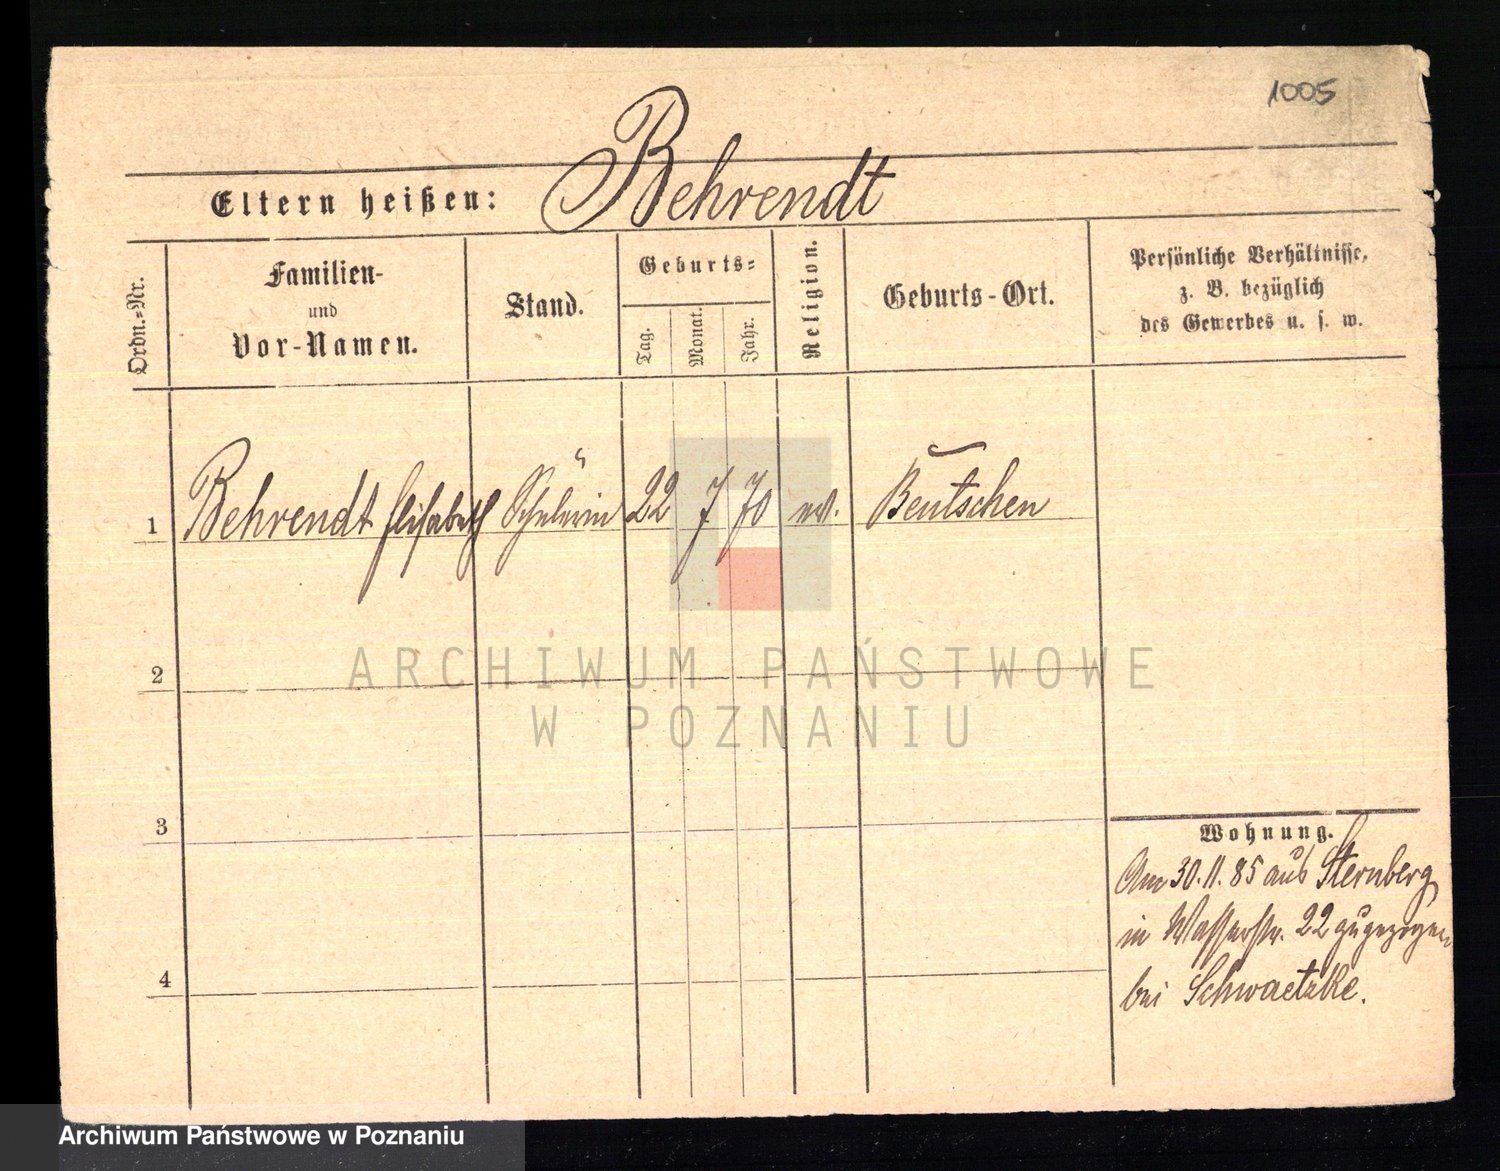 1005
Eltern heißen: Behrendt
Ordn.-Nr.
Familien-
und
Vor-Namen.
Stand.
Geburts-
Tag.
Monat.
Jahr.
Religion.
Geburts-Ort.
Persönliche Verhältnisse,
z. B. bezüglich
des Gewerbes u. s. w.
1 Behrendt Elisabeth Schülerin 22 7 70 ev. Bentschen
2
3
4
Wohnung.
Am 30.11.85 aus Sternberg
in Wasserstr. 22 zugezogen
bei Schwaetzke.
ARCHIWUM PAŃSTWOWE
W POZNANIU
Archiwum Państwowe w Poznaniu